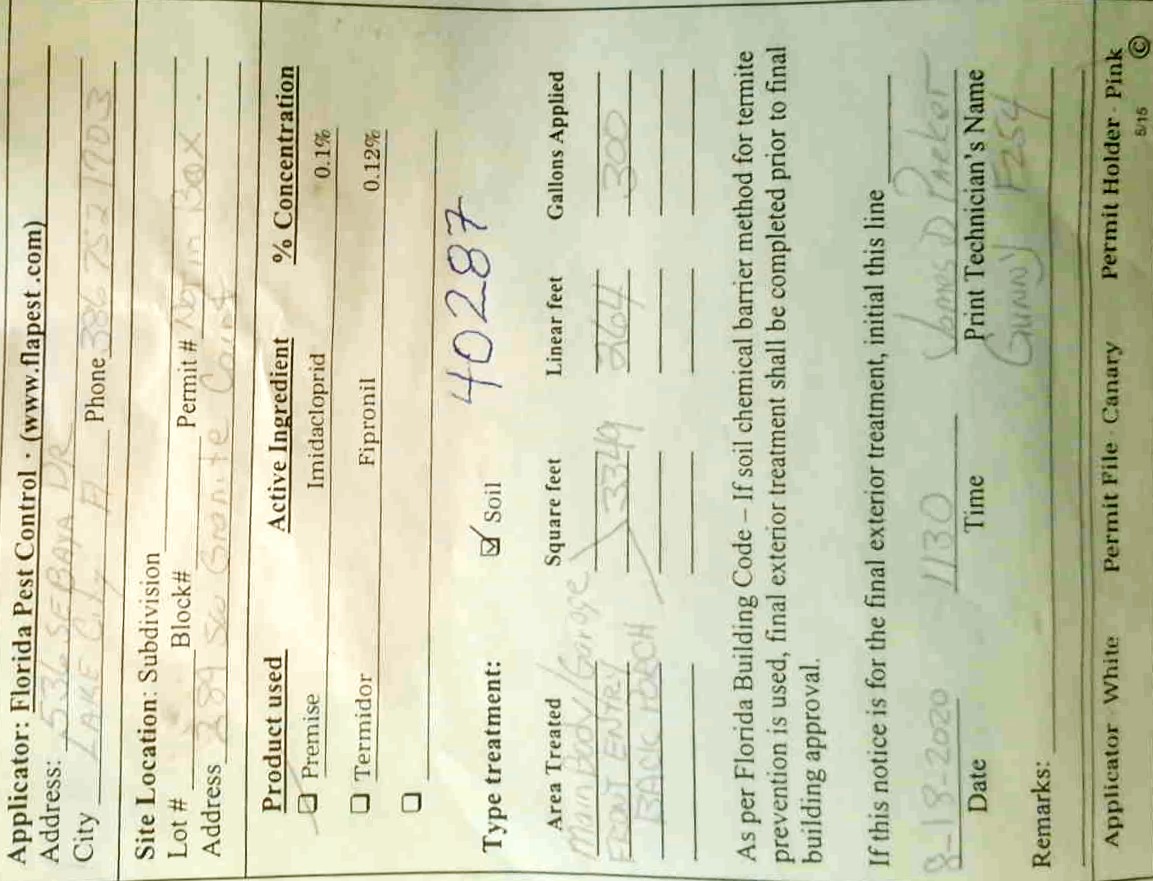 Applicator: Florida Pest Control · (www.flapest.com)
Address: 536 SE BAYA DR
City LAKE City Fl Phone 386 752 1703
Site Location: Subdivision
Lot # Block# Permit # in Box
Address 289 SW Granite Court
Product used Active Ingredient % Concentration
Premise Imidacloprid 0.1%
Termidor Fipronil 0.12%
40287
Type treatment: Soil
Area Treated Square feet Linear feet Gallons Applied
Main Body/Garage
FRONT ENTRY 3349 264 300
BACK PORCH
As per Florida Building Code – If soil chemical barrier method for termite
prevention is used, final exterior treatment shall be completed prior to final
building approval.
If this notice is for the final exterior treatment, initial this line
8-18-2020 1130 James D Parker
Date Time Print Technician's Name
GUNNY F254
Remarks:
Applicator White Permit File · Canary Permit Holder · Pink
5/15 ©